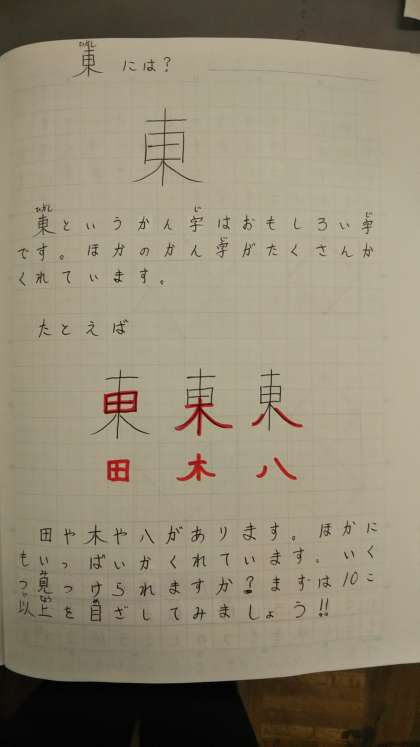 ひがし
東 には?
東
ひがし じ じ
東というかん字はおもしろい字
じ
です。ほかのかん字がたくさんか
くれています。
たとえば
東 東 東
田 木 八
田や木や八があります。ほかに
もいっぱいかくれています。いく
み
つ見つけられますか?まずは10こ
いじょう め
以上を目ざしてみましょう!!